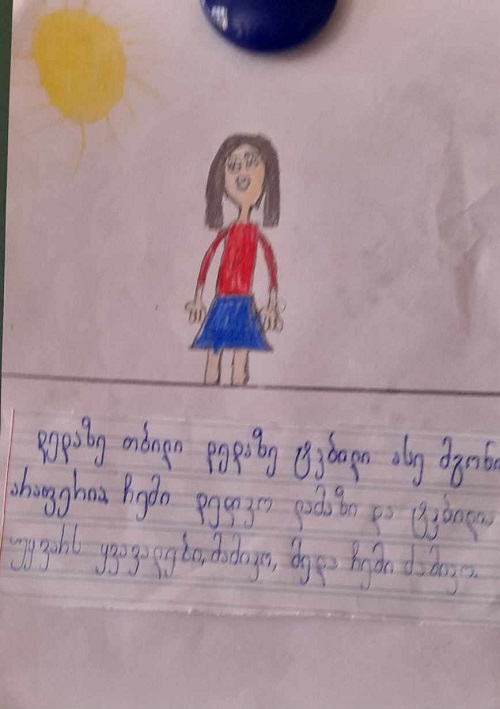 დედაზე თბილი დედაზე ტკბილი ასე მგონი
არაფერია ჩემი დედიკო ლამაზი და ტკბილია
უყვარს ყვავილები, მამიკო, მედა ჩემი ძამიკო.